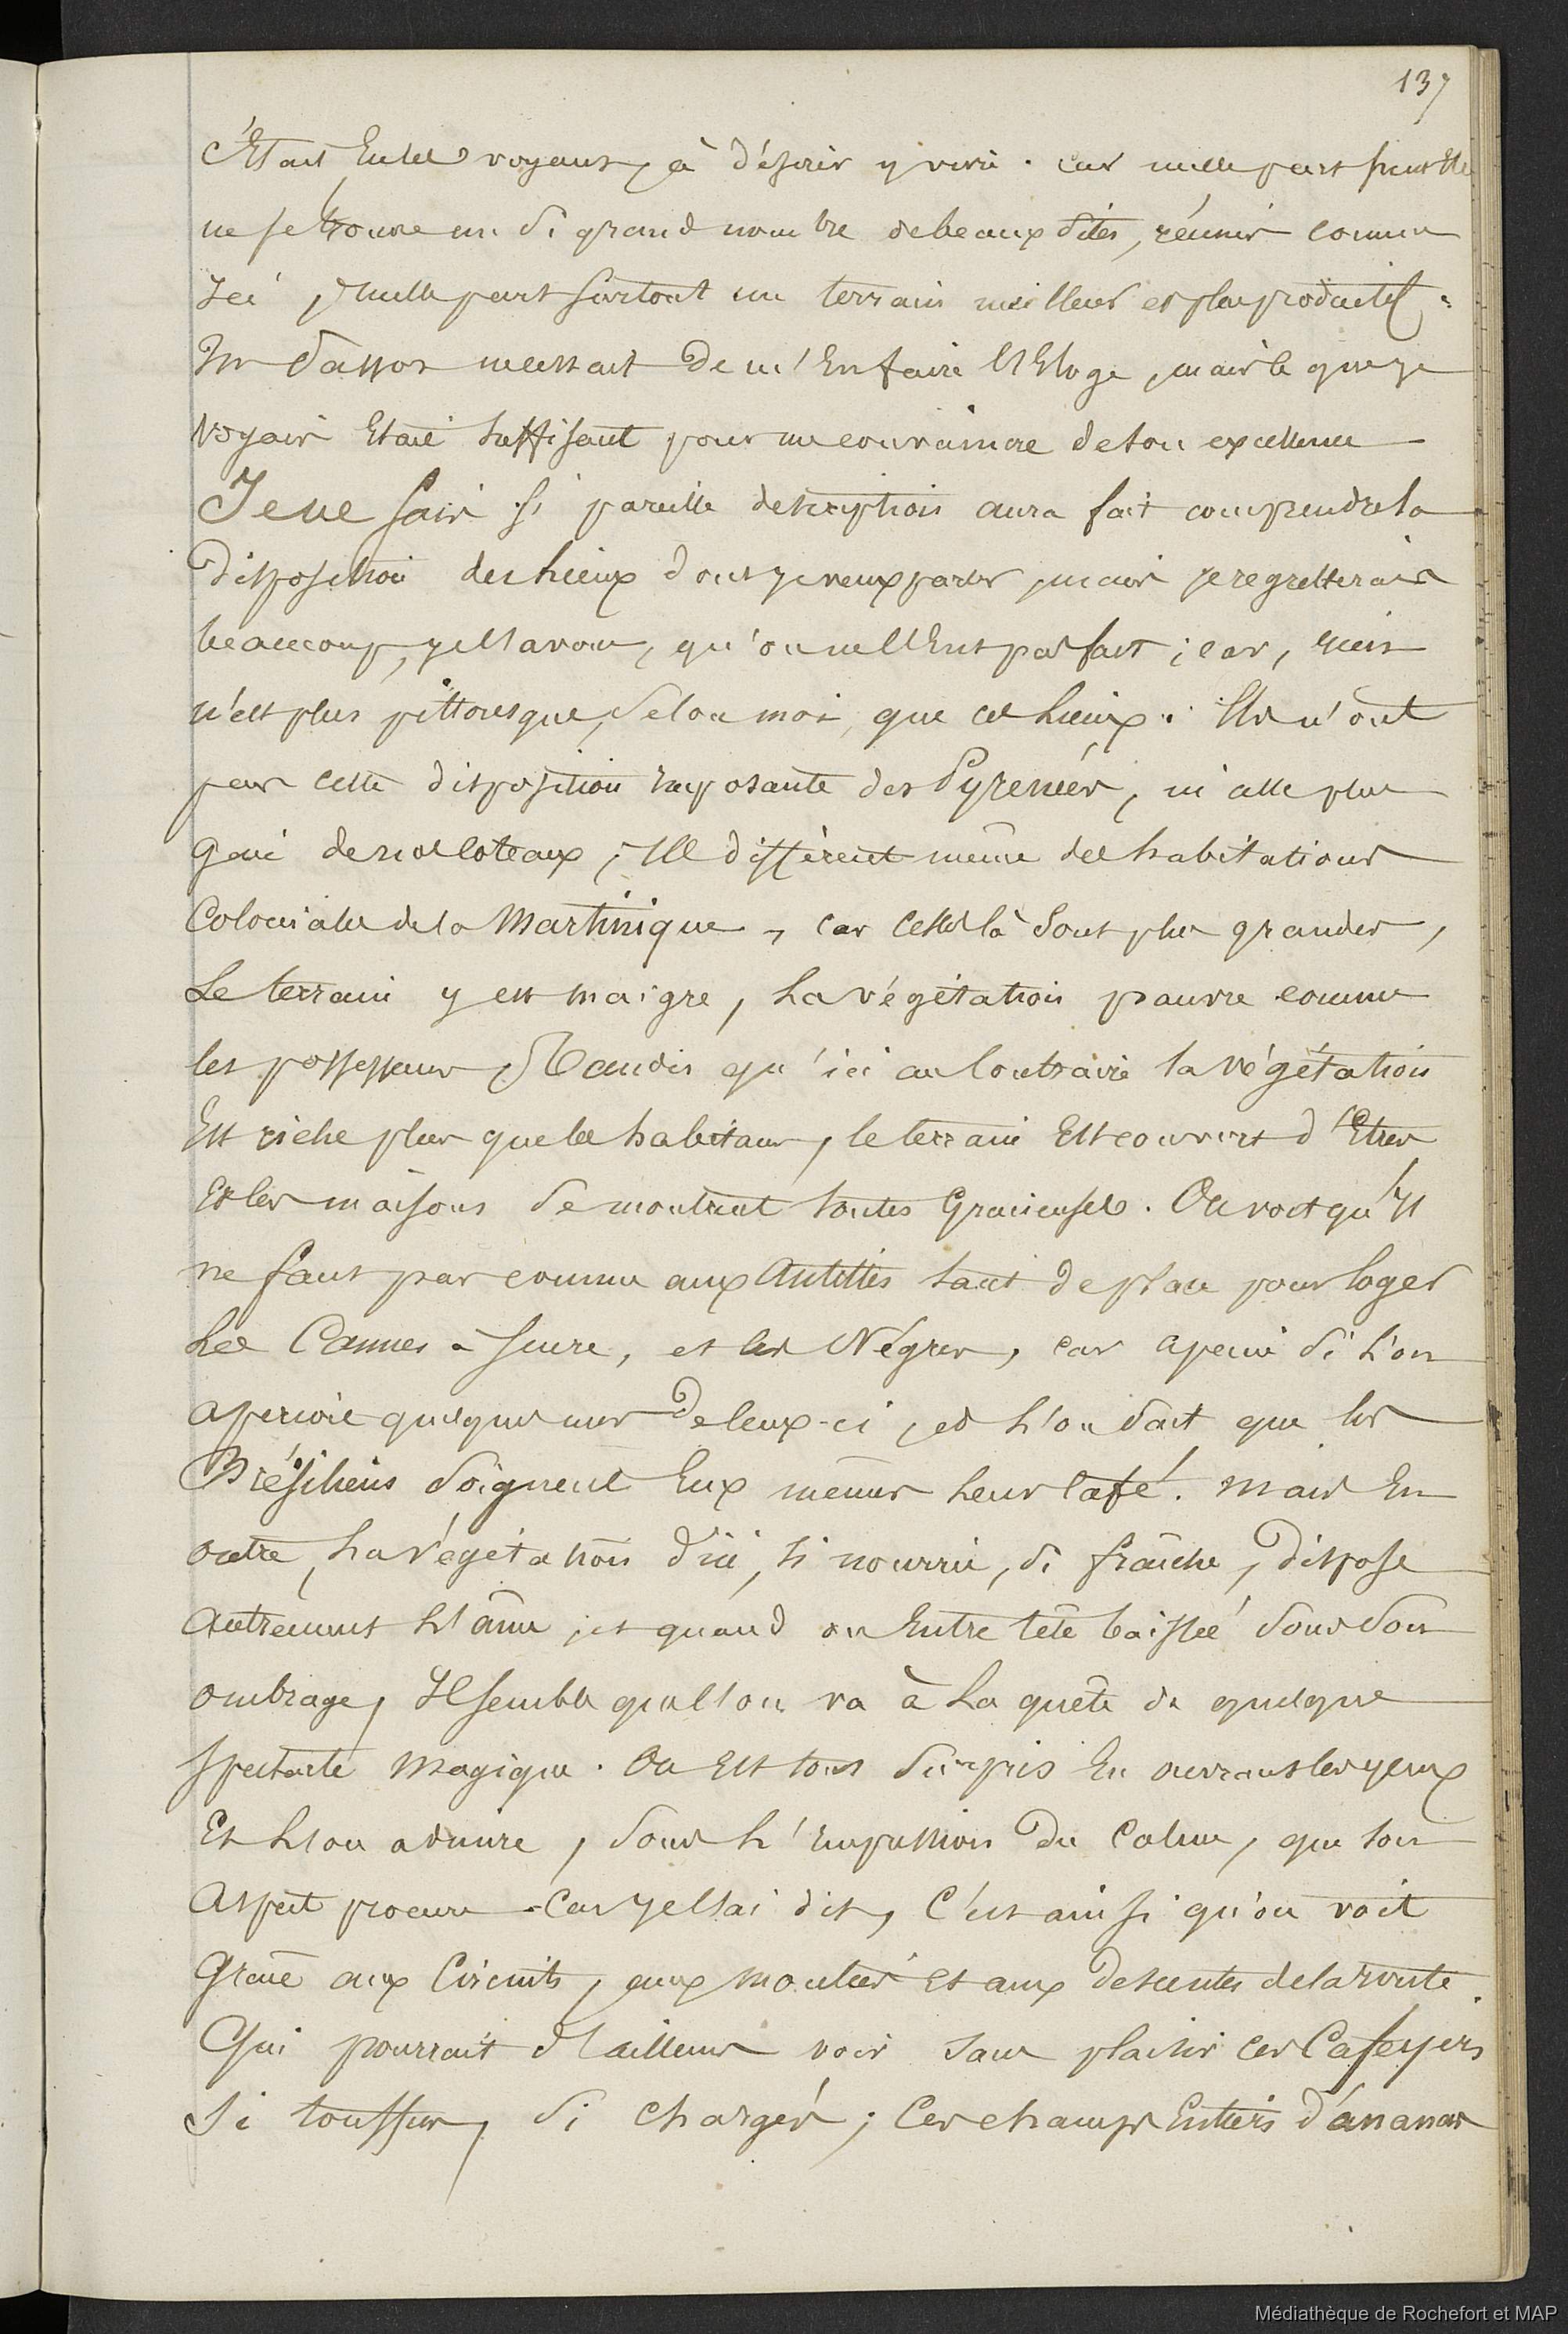 137
C'était En les voyant, à désirer y vivre. car nulle part peut être
ne se trouve un si grand nombre de beaux sites, réunis comme
Ici, nulle part surtout un terrain meilleur et plus productif.
Mr Dassor mettait De m'En faire l'Eloge, mais ce que je
voyais Etait suffisant pour me convaincre de son excellence
Je ne sais si pareille description aura fait comprendre la
Disposition des lieux dont je veux parler, mais je regretterais
beaucoup, je l'avoue, qu'on ne l'Eut pas fait; car, rien
n'est plus pittoresque, selon moi, que ces lieux. Ils n'ont
pas cette disposition Imposante des Pyrenées, ni celle plus
gaie de nos coteaux; Ils diffèrent même des habitations
Coloniales de la Martinique, car celles là sont plus grandes,
Le terrain y est maigre, La végétation pauvre comme
les possesseurs, Tandis qu'ici au Contraire la végétation
Est riche plus que les habitans, le terrain Est couvert d'Etres
Et les maisons se montrent toutes Gracieuses. On voit qu'Il
ne faut pas comme aux Antilles tant de place pour loger
Les Cannes à sucre, et les Nègres, car à peine si l'on
aperçoit quelques uns De ceux-ci, et l'on sait que les
Brésiliens soignent Eux mêmes leur Café. Mais En
outre, La végétation d'ici, si nourrie, si fraîche, Dispose
autrement L'âme, et quand on Entre tête baissée sous son
ombrage, Il semble que l'on va à La quête de quelque
spectacle Magique. On Est tout surpris En ouvrant les yeux
Et L'on admire, sous L'Impression Du Calme, que son
Aspect procure. Car je l'ai dit, C'est ainsi qu'on voit
Grace aux Circuits, aux montées Et aux Descentes de la route.
Qui pourrait d'ailleurs voir sans plaisir ces Cafeyers
Si touffus, si chargés; Ces champs Entiers d'ananas
Médiathèque de Rochefort et MAP